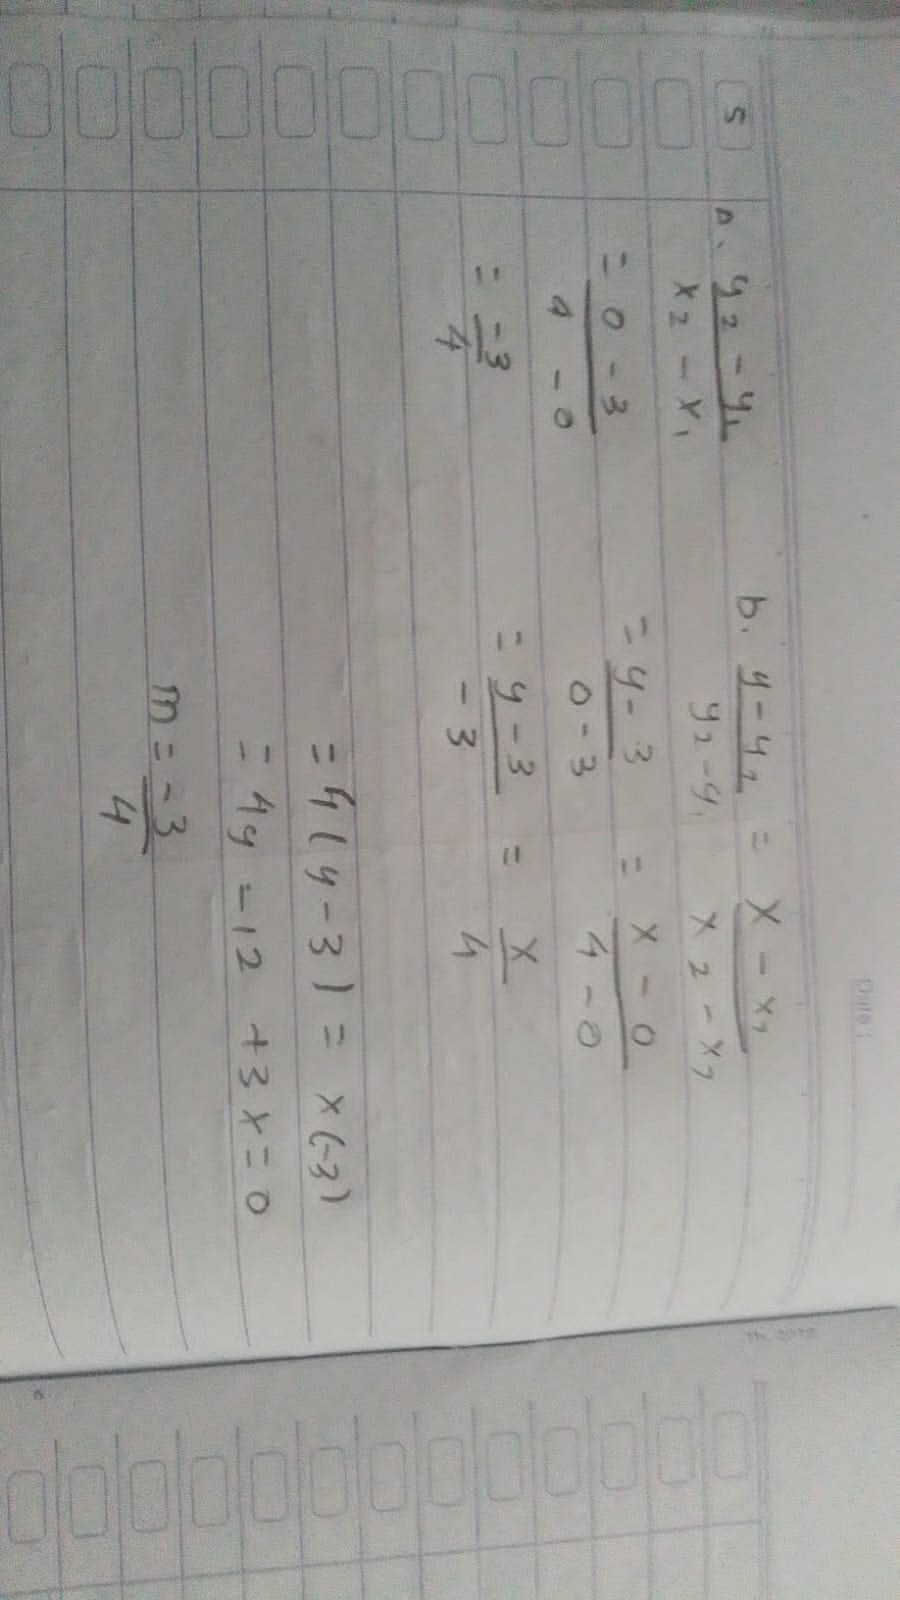 Date:
5 A. y2 - y1 / x2 - x1
= 0 - 3 / 4 - 0
= -3 / 4
b. y - y1 / y2 - y1 = x - x1 / x2 - x1
= y - 3 / 0 - 3 = x - 0 / 4 - 0
= y - 3 / -3 = x / 4
= 4(y - 3) = x(-3)
= 4y - 12 + 3x = 0
m = -3 / 4